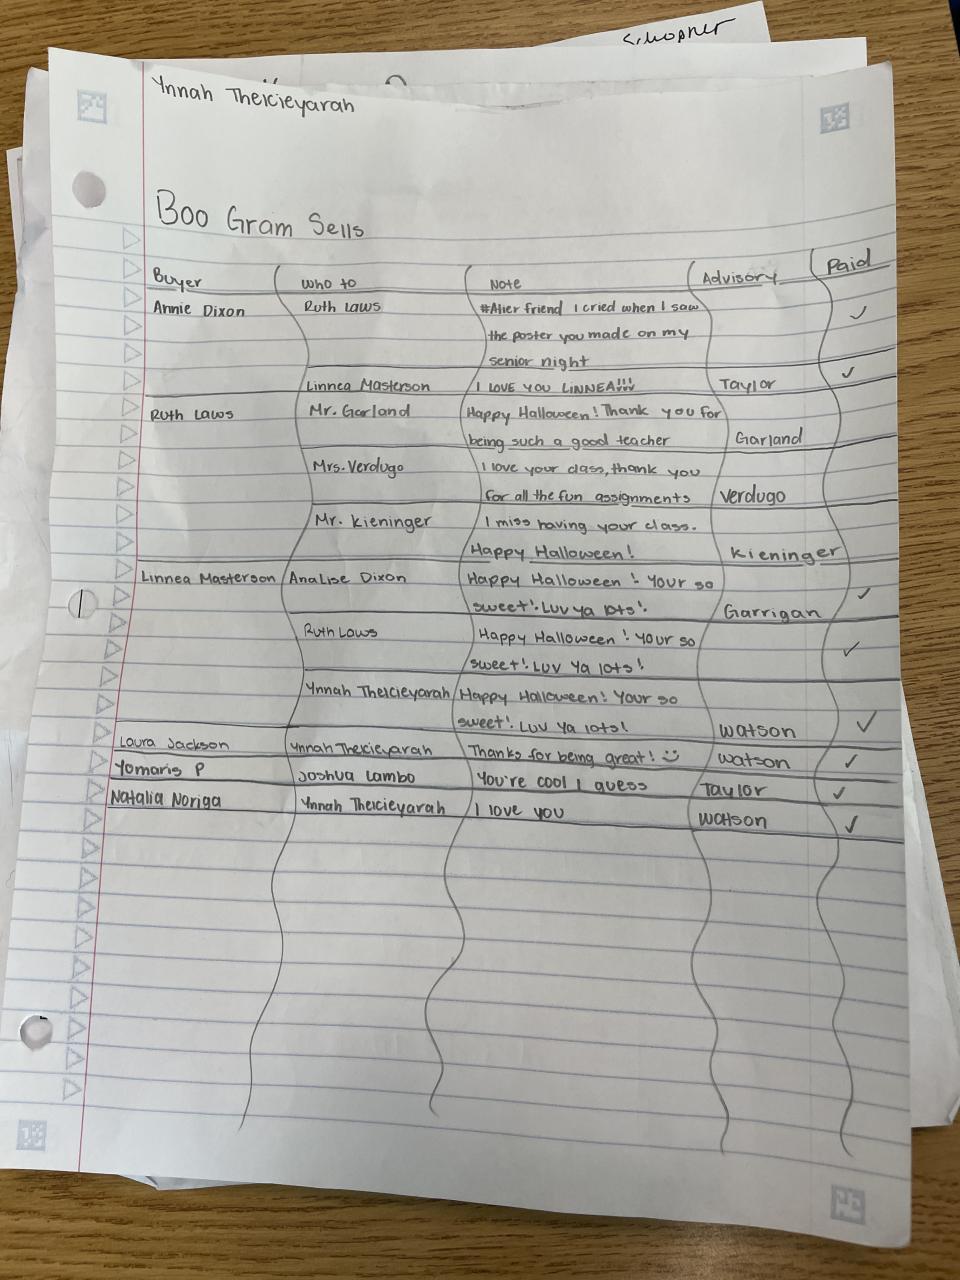 Schopner
Ynnah Thekieyarah
Boo Gram Sells
Buyer Who to Note Advisory Paid
Annie Dixon Ruth Laws #Alier friend I cried when I saw ✓
the poster you made on my
senior night
Linnea Masterson I LOVE YOU LINNEA!!! Taylor ✓
Ruth Laws Mr. Garland Happy Halloween! Thank you for
being such a good teacher Garland
Mrs. Verdugo I love your class, thank you
for all the fun assignments Verdugo
Mr. Kieninger I miss having your class.
Happy Halloween! Kieninger
Linnea Masterson Analise Dixon Happy Halloween! Your so ✓
sweet! Luv ya lots! Garrigan
Ruth Laws Happy Halloween! Your so ✓
sweet! Luv ya lots!
Ynnah Thekieyarah Happy Halloween! Your so
sweet! Luv ya lots! Watson ✓
Laura Jackson Ynnah Thekieyarah Thanks for being great! Watson ✓
Yomaris P Joshua Lambo You're cool I guess Taylor ✓
Natalia Noriga Ynnah Thekieyarah I love you Watson ✓